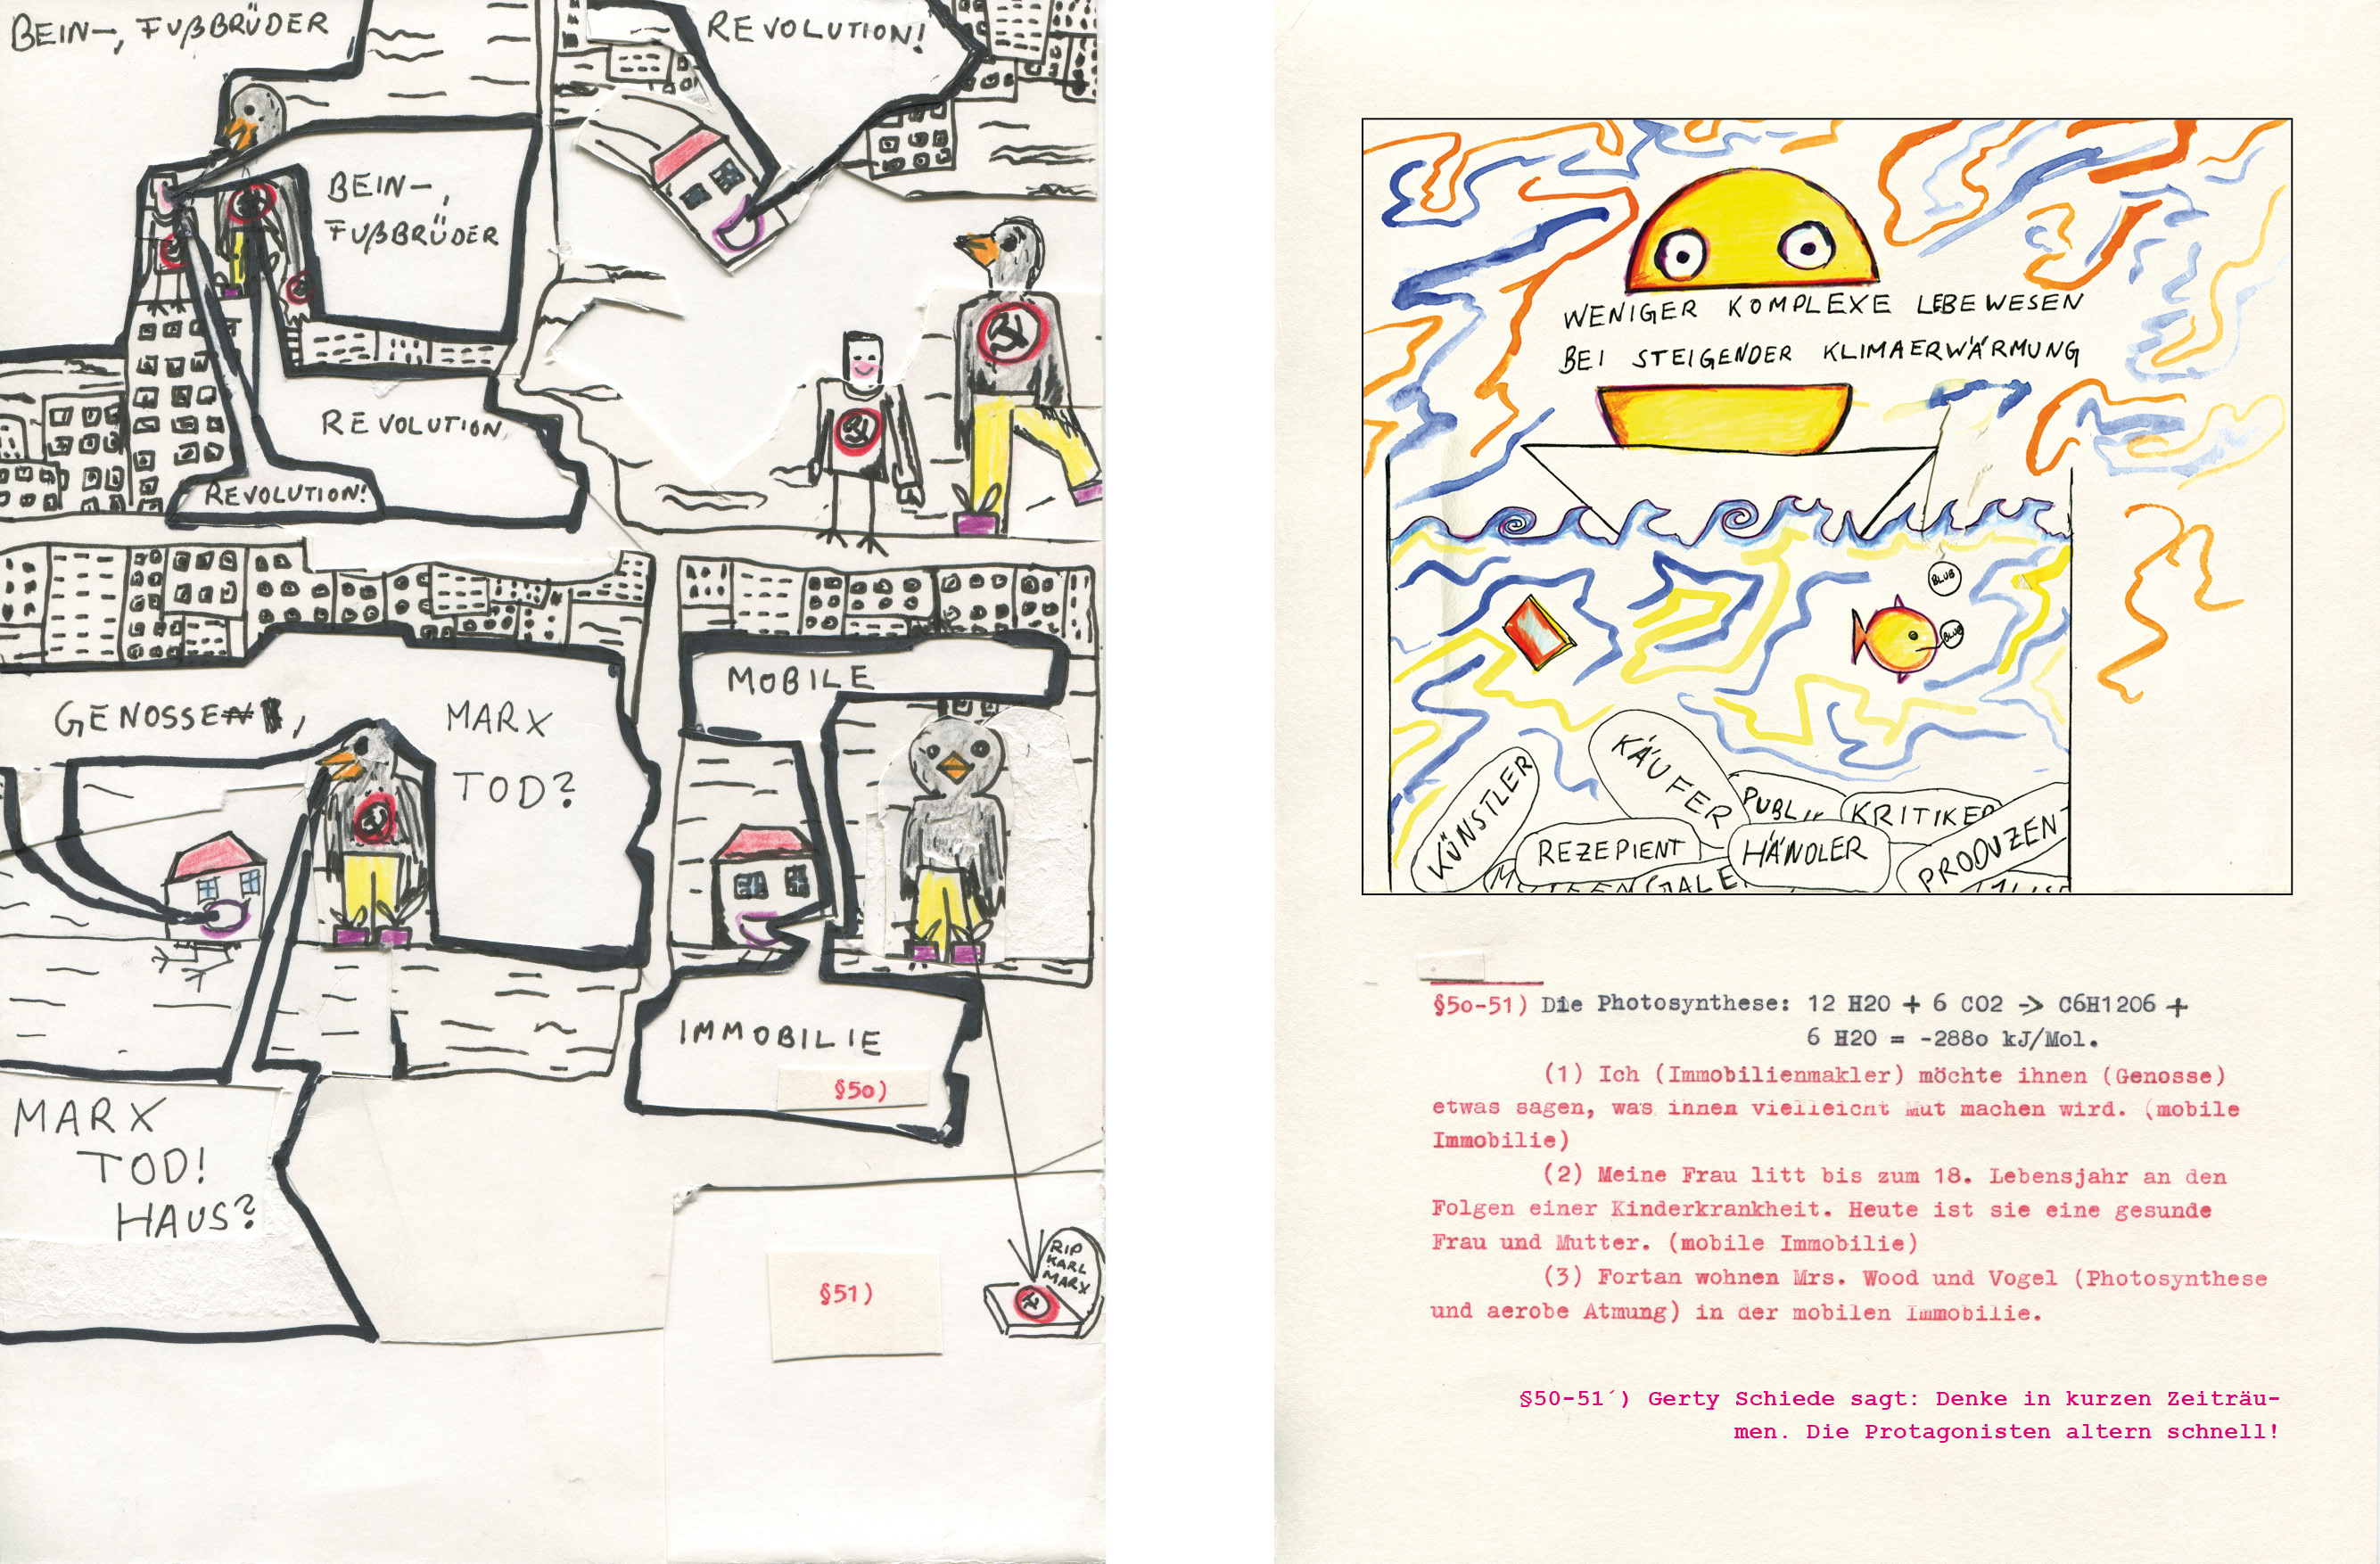 BEIN-, FUßBRÜDER
REVOLUTION!
BEIN-,
FUßBRÜDER
REVOLUTION
REVOLUTION!
GENOSSE
,
MARX
TOD?
MOBILE
IMMOBILIE
§5o)
MARX
TOD!
HAUS?
§51)
RIP
KARL
MARX
WENIGER KOMPLEXE LEBEWESEN
BEI STEIGENDER KLIMAERWÄRMUNG
BLUB
BLUB
KÜNSTLER
KÄUFER
KRITIKER
REZEPIENT
HÄNDLER
PRODUZENT
§5o-51) Die Photosynthese: 12 H2O + 6 CO2 -> C6H12O6 +
6 H2O = -288o kJ/Mol.
(1) Ich (Immobilienmakler) möchte ihnen (Genosse)
etwas sagen, was ihnen vielleicht Mut machen wird. (mobile
Immobilie)
(2) Meine Frau litt bis zum 18. Lebensjahr an den
Folgen einer Kinderkrankheit. Heute ist sie eine gesunde
Frau und Mutter. (mobile Immobilie)
(3) Fortan wohnen Mrs. Wood und Vogel (Photosynthese
und aerobe Atmung) in der mobilen Immobilie.
§50-51´) Gerty Schiede sagt: Denke in kurzen Zeiträu-
men. Die Protagonisten altern schnell!